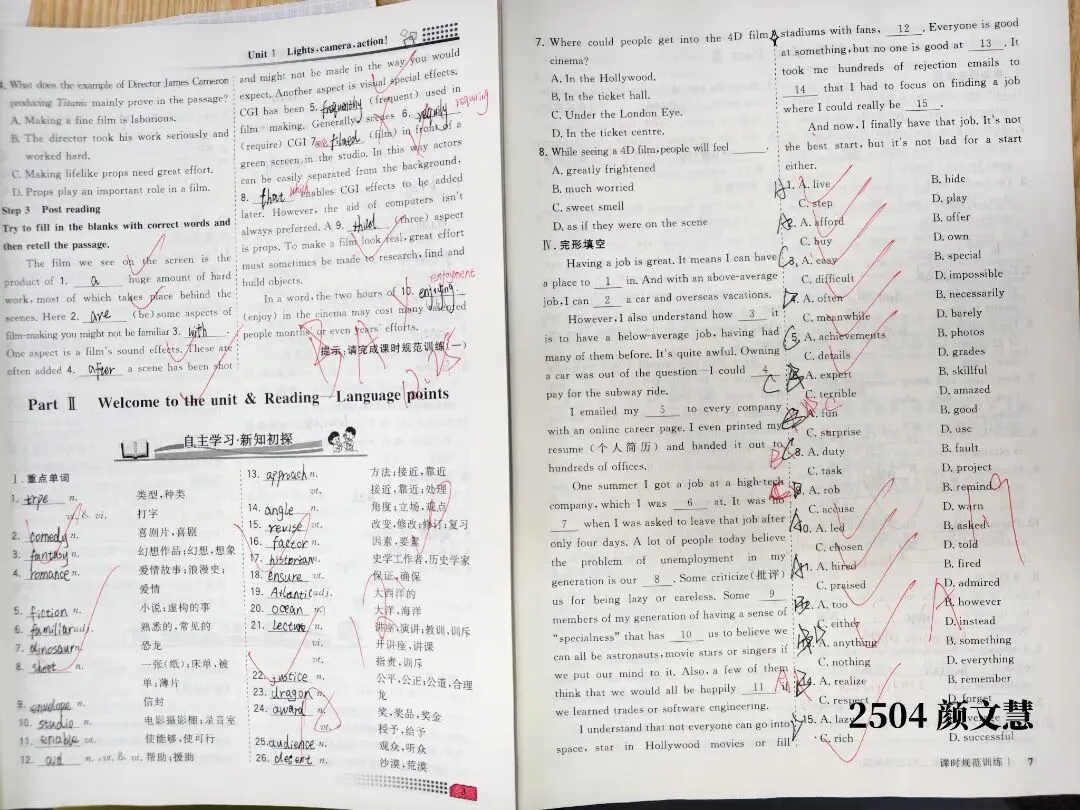 Unit 1 Lights, camera, action!
4. What does the example of Director James Cameron
producing Titanic mainly prove in the passage?
A. Making a fine film is laborious.
B. The director took his work seriously and
worked hard.
C. Making lifelike props need great effort.
D. Props play an important role in a film.
Step 3 Post reading
Try to fill in the blanks with correct words and
then retell the passage.
The film we see on the screen is the
product of 1. a huge amount of hard
work, most of which takes place behind the
scenes. Here 2. are (be) some aspects of
film-making you might not be familiar 3. with.
One aspect is a film's sound effects. These are
often added 4. after a scene has been shot
and might not be made in the way you would
expect. Another aspect is visual special effects.
CGI has been 5. frequently (frequent) used in
film-making. Generally, scenes 6.
requiring
(require) CGI 7. are filmed (film) in front of a
green screen in the studio. In this way actors
can be easily separated from the background,
8. that which enables CGI effects to be added
later. However, the aid of computers isn't
always preferred. A 9. third (three) aspect
is props. To make a film look real, great effort
must sometimes be made to research, find and
build objects.
enjoyment
In a word, the two hours of 10. enjoying
(enjoy) in the cinema may cost many talented
people months' or even years' efforts.
提示:请完成课时规范训练(一)
12.25
Part Ⅱ Welcome to the unit & Reading—Language points
自主学习·新知初探
Ⅰ.重点单词
1. type n. 类型,种类
vt. & vi. 打字
2. comedy n. 喜剧片,喜剧
3. fantasy n. 幻想作品;幻想,想象
4. romance n. 爱情故事;浪漫史;
爱情
5. fiction n. 小说;虚构的事
6. familiar adj. 熟悉的,常见的
7. dinosaur n. 恐龙
8. sheet n. 一张(纸);床单,被
单;薄片
9. envelope n. 信封
10. studio n. 电影摄影棚;录音室
11. enable vt. 使能够,使可行
12. aid n., vt. & vi. 帮助;援助
13. approach n. 方法;接近,靠近
vt. 接近,靠近;处理
14. angle n. 角度;立场,观点
15. revise vt. 改变,修改;修订;复习
16. factor n. 因素,要素
17. historian n. 史学工作者,历史学家
18. ensure vt. 保证,确保
19. Atlantic adj. 大西洋的
20. ocean n. 大洋,海洋
21. lecture n. 讲座,演讲;教训,训斥
vi. 开讲座,讲课
vt. 指责,训斥
22. justice n. 公平,公正;公道,合理
23. dragon n. 龙
24. award n. 奖,奖品,奖金
vt. 授予,给予
25. audience n. 观众,听众
26. desert n. 沙漠,荒漠
7. Where could people get into the 4D film
cinema?
A. In the Hollywood.
B. In the ticket hall.
C. Under the London Eye.
D. In the ticket centre.
8. While seeing a 4D film, people will feel ____.
A. greatly frightened
B. much worried
C. sweet smell
D. as if they were on the scene
Ⅳ.完形填空
Having a job is great. It means I can have
a place to 1 in. And with an above-average
job, I can 2 a car and overseas vacations.
However, I also understand how 3 it
is to have a below-average job, having had
many of them before. It's quite awful. Owning
a car was out of the question—I could 4
pay for the subway ride.
I emailed my 5 to every company
with an online career page. I even printed my
resume(个人简历) and handed it out to
hundreds of offices.
One summer I got a job at a high-tech
company, which I was 6 at. It was no
7 when I was asked to leave that job after
only four days. A lot of people today believe
the problem of unemployment in my
generation is our 8. Some criticize(批评)
us for being lazy or careless. Some 9
members of my generation of having a sense of
"specialness" that has 10 us to believe we
can all be astronauts, movie stars or singers if
we put our mind to it. Also, a few of them
think that we would all be happily 11 if
we learned trades or software engineering.
I understand that not everyone can go into
space, star in Hollywood movies or fill
stadiums with fans, 12. Everyone is good
at something, but no one is good at 13. It
took me hundreds of rejection emails to
14 that I had to focus on finding a job
where I could really be 15.
And now, I finally have that job. It's not
the best start, but it's not bad for a start
either.
1. A. live B. hide
C. step D. play
2. A. afford B. offer
C. buy D. own
3. A. easy B. special
C. difficult D. impossible
4. A. often B. necessarily
C. meanwhile D. barely
5. A. achievements B. photos
C. details D. grades
6. A. expert B. skillful
C. terrible D. amazed
7. A. fun B. good
C. surprise D. use
8. A. duty B. fault
C. task D. project
9. A. rob B. remind
C. accuse D. warn
10. A. led B. asked
C. chosen D. told
11. A. hired B. fired
C. praised D. admired
12. A. too B. however
C. either D. instead
13. A. anything B. something
C. nothing D. everything
14. A. realize B. remember
C. respect D. forget
15. A. lazy
C. rich D. successful
2504 颜文慧
课时规范训练 7